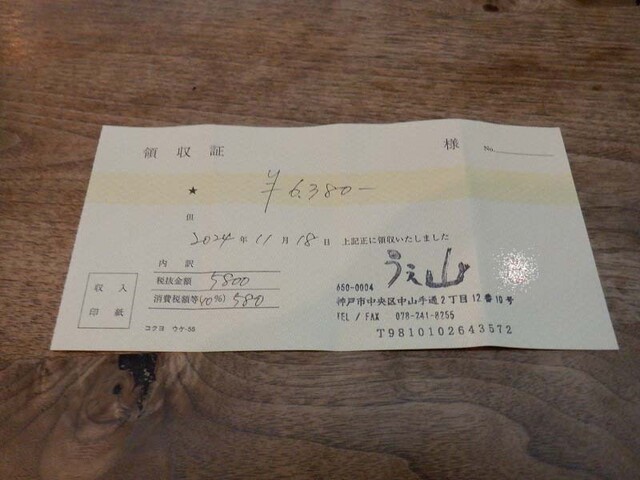 領収証 様 No.
★ ¥6,380-
但
2024年11月18日 上記正に領収いたしました
内訳
税抜金額 5800
消費税額等(10%) 580
収入
印紙
コクヨ ウケ-55
うえ山
650-0004
神戸市中央区中山手通2丁目12番10号
TEL / FAX 078-241-8255
T9810102643572